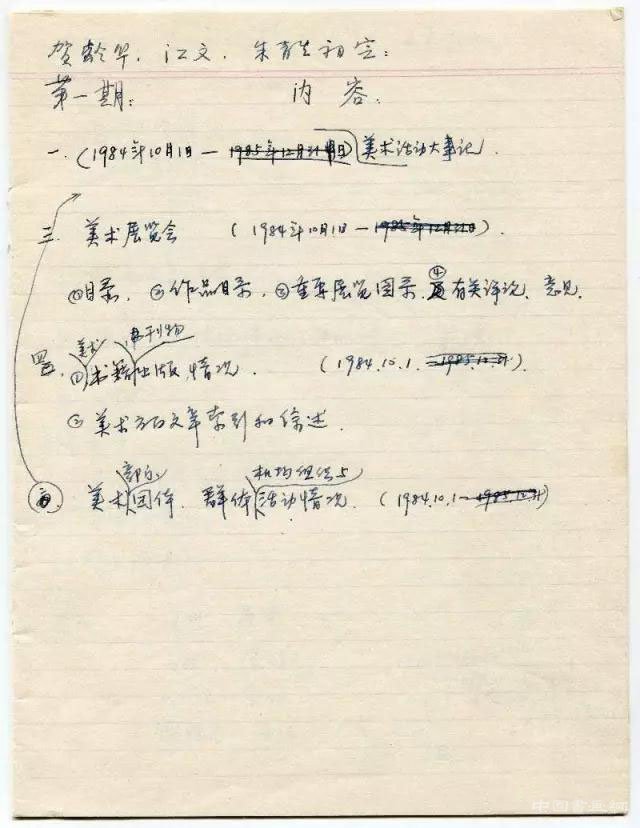 贺龄华、江文、朱青生初定：
第一期： 内容：
一、（1984年10月1日— 1985年12月31日）美术活动大事记.
三、美术展览会 （1984年10月1日— 1985年12月31日）.
①目录、②作品目录、③重要展览图录、④有关评论、意见.
美术 再刊物
四、①书籍出版情况. （1984.10.1.—1985.12.31）.
②美术方面文章索引和综述.
部分 机构组织与
美术团体、群体活动情况. （1984.10.1—1985.12.31）
中国书画网